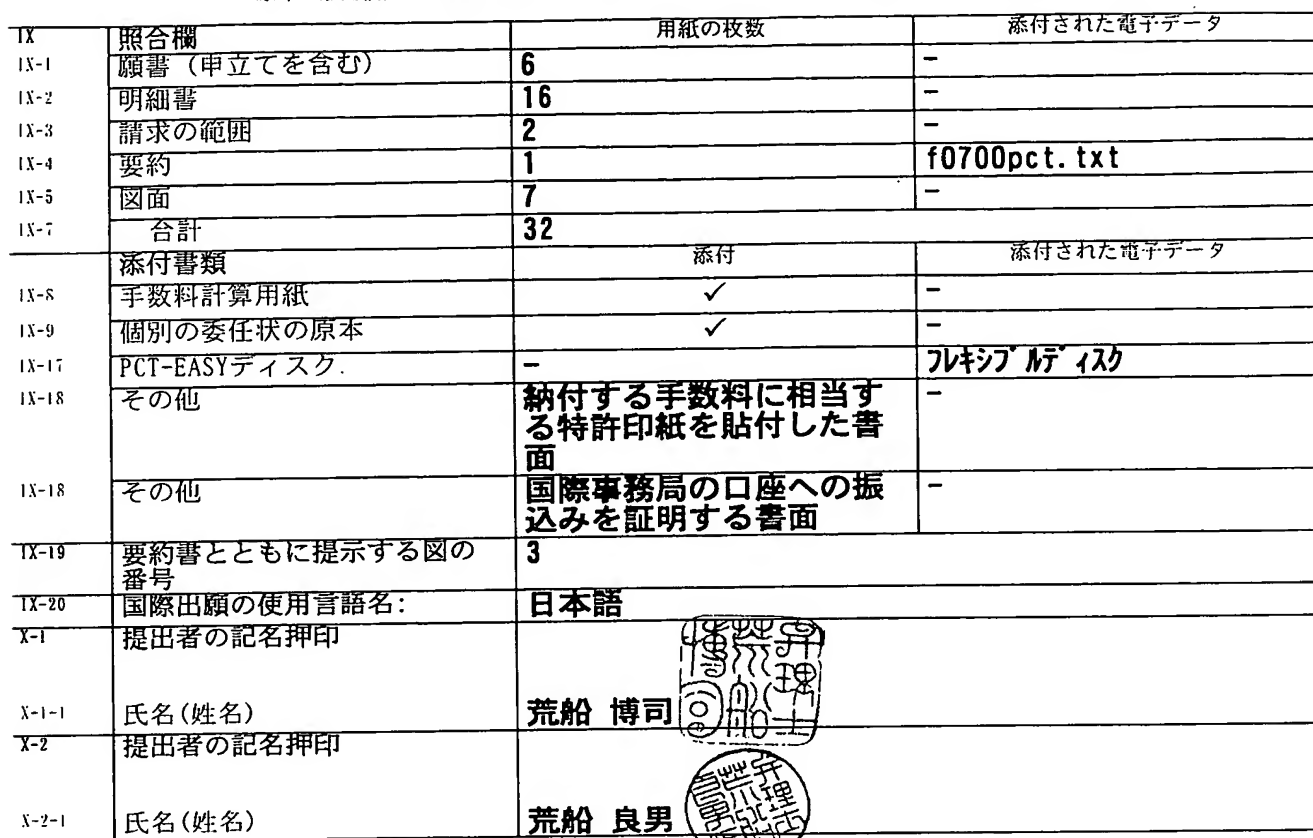 IX 照合欄 用紙の枚数 添付された電子データ
IX-1 願書(申立てを含む) 6 -
IX-2 明細書 16 -
IX-3 請求の範囲 2 -
IX-4 要約 1 f0700pct.txt
IX-5 図面 7 -
IX-7 合計 32
添付書類 添付 添付された電子データ
IX-8 手数料計算用紙 ✓ -
IX-9 個別の委任状の原本 ✓ -
IX-17 PCT-EASYディスク. - フレキシブルディスク
IX-18 その他 納付する手数料に相当す -
る特許印紙を貼付した書
面
IX-18 その他 国際事務局の口座への振 -
込みを証明する書面
IX-19 要約書とともに提示する図の 3
番号
IX-20 国際出願の使用言語名: 日本語
X-1 提出者の記名押印
X-1-1 氏名(姓名) 荒船 博司
X-2 提出者の記名押印
X-2-1 氏名(姓名) 荒船 良男